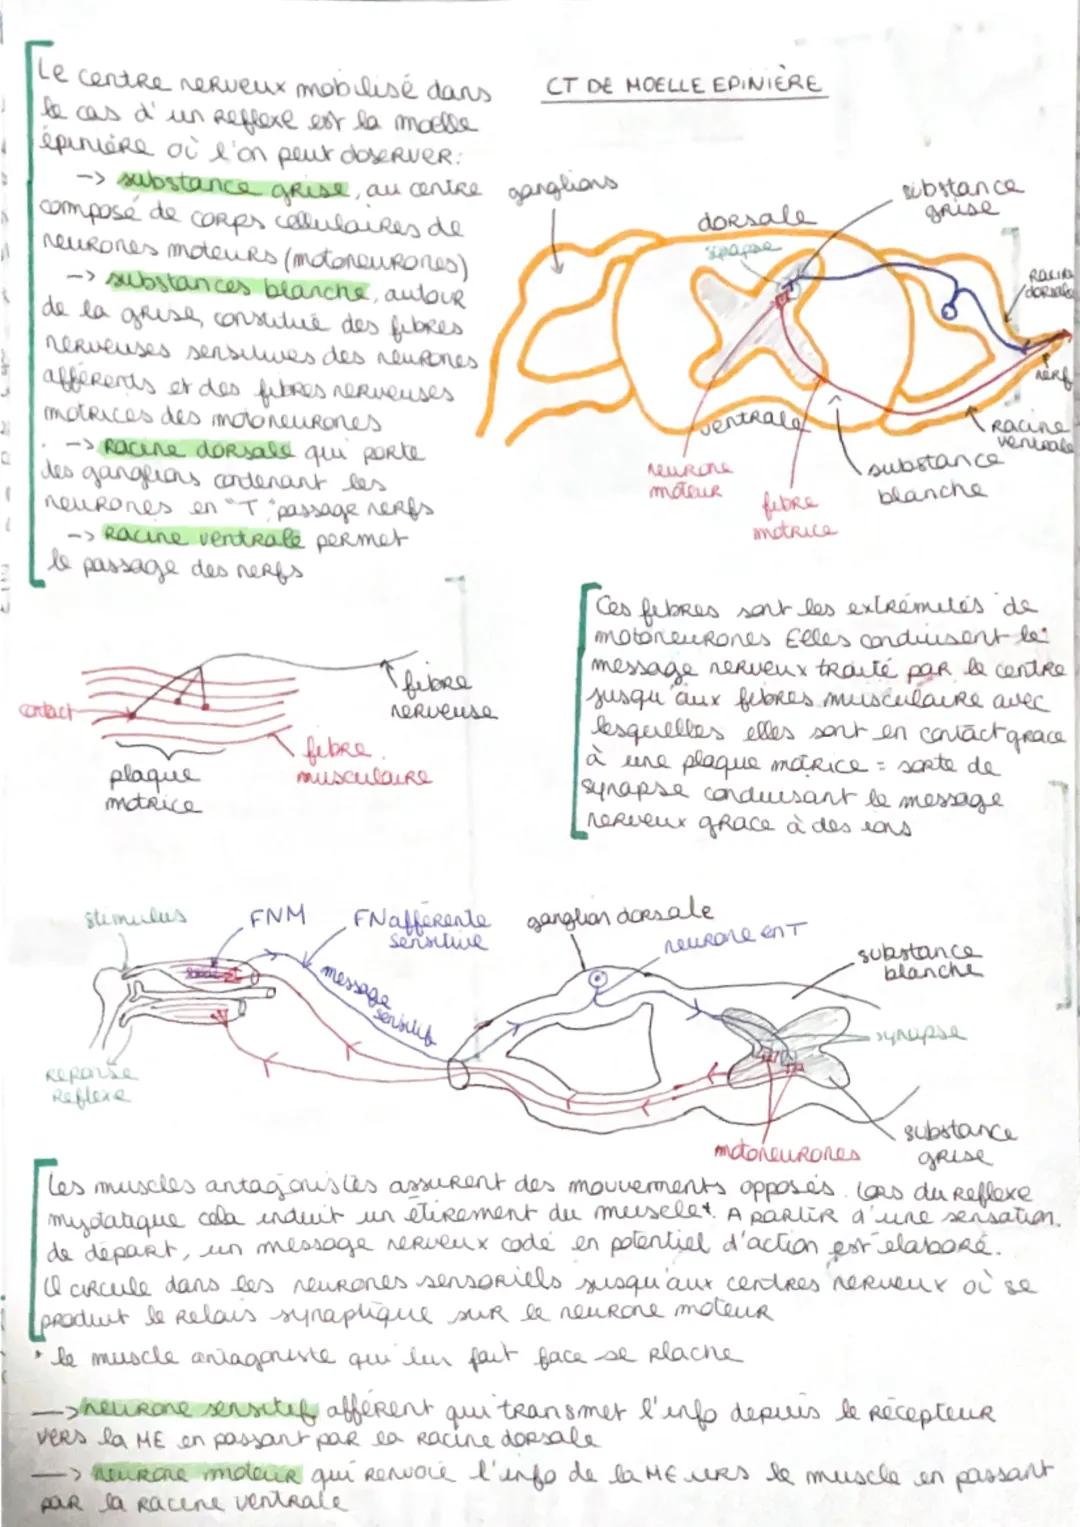 Le centre nerveux mobilisé dans
le cas d'un reflexe est la moelle
épinière où l'on peut observer:
-> substance grise, au centre
composé de corps cellulaires de
neurones moteurs (motoneurones)
-> substances blanche, autour
de la grise, constitué des fibres
nerveuses sensitives des neurones
afférents et des fibres nerveuses
motrices des motoneurones
-> Racine dorsale qui porte
des ganglions contenant les
neurones en "T", passage nerfs
-> Racine ventrale permet
le passage des nerfs
CT DE MOELLE EPINIÈRE
ganglions
dorsale
synapse
substance
grise
Racine
dorsale
nerf
Racine
ventrale
ventrale
substance
blanche
neurone
moteur
fibre
motrice
contact
plaque
motrice
fibre
nerveuse
fibre
musculaire
Ces fibres sont les extrémités de
motoneurones Elles conduisent le
message nerveux traité par le centre
jusqu'aux fibres musculaire avec
lesquelles elles sont en contact grace
à une plaque motrice = sorte de
synapse conduisant le message
nerveux grace à des ions
stimulus
FNM
FN afférente
sensitive
message
sensitif
ganglion dorsale
neurone en T
substance
blanche
synapse
réponse
Reflexe
motoneurones
substance
grise
Les muscles antagonistes assurent des mouvements opposés. Lors du Reflexe
myotatique cela induit un étirement du muscle*. A partir d'une sensation
de départ, un message nerveux codé en potentiel d'action est élaboré.
Il circule dans les neurones sensoriels jusqu'aux centres nerveux où se
produit le Relais synaptique sur le neurone moteur
* le muscle antagoniste qui leur fait face se relache
-> neurone sensitif afférent qui transmet l'info depuis le Récepteur
vers la ME en passant par la racine dorsale
-> neurone moteur qui renvoie l'info de la ME vers le muscle en passant
par la Racine ventrale